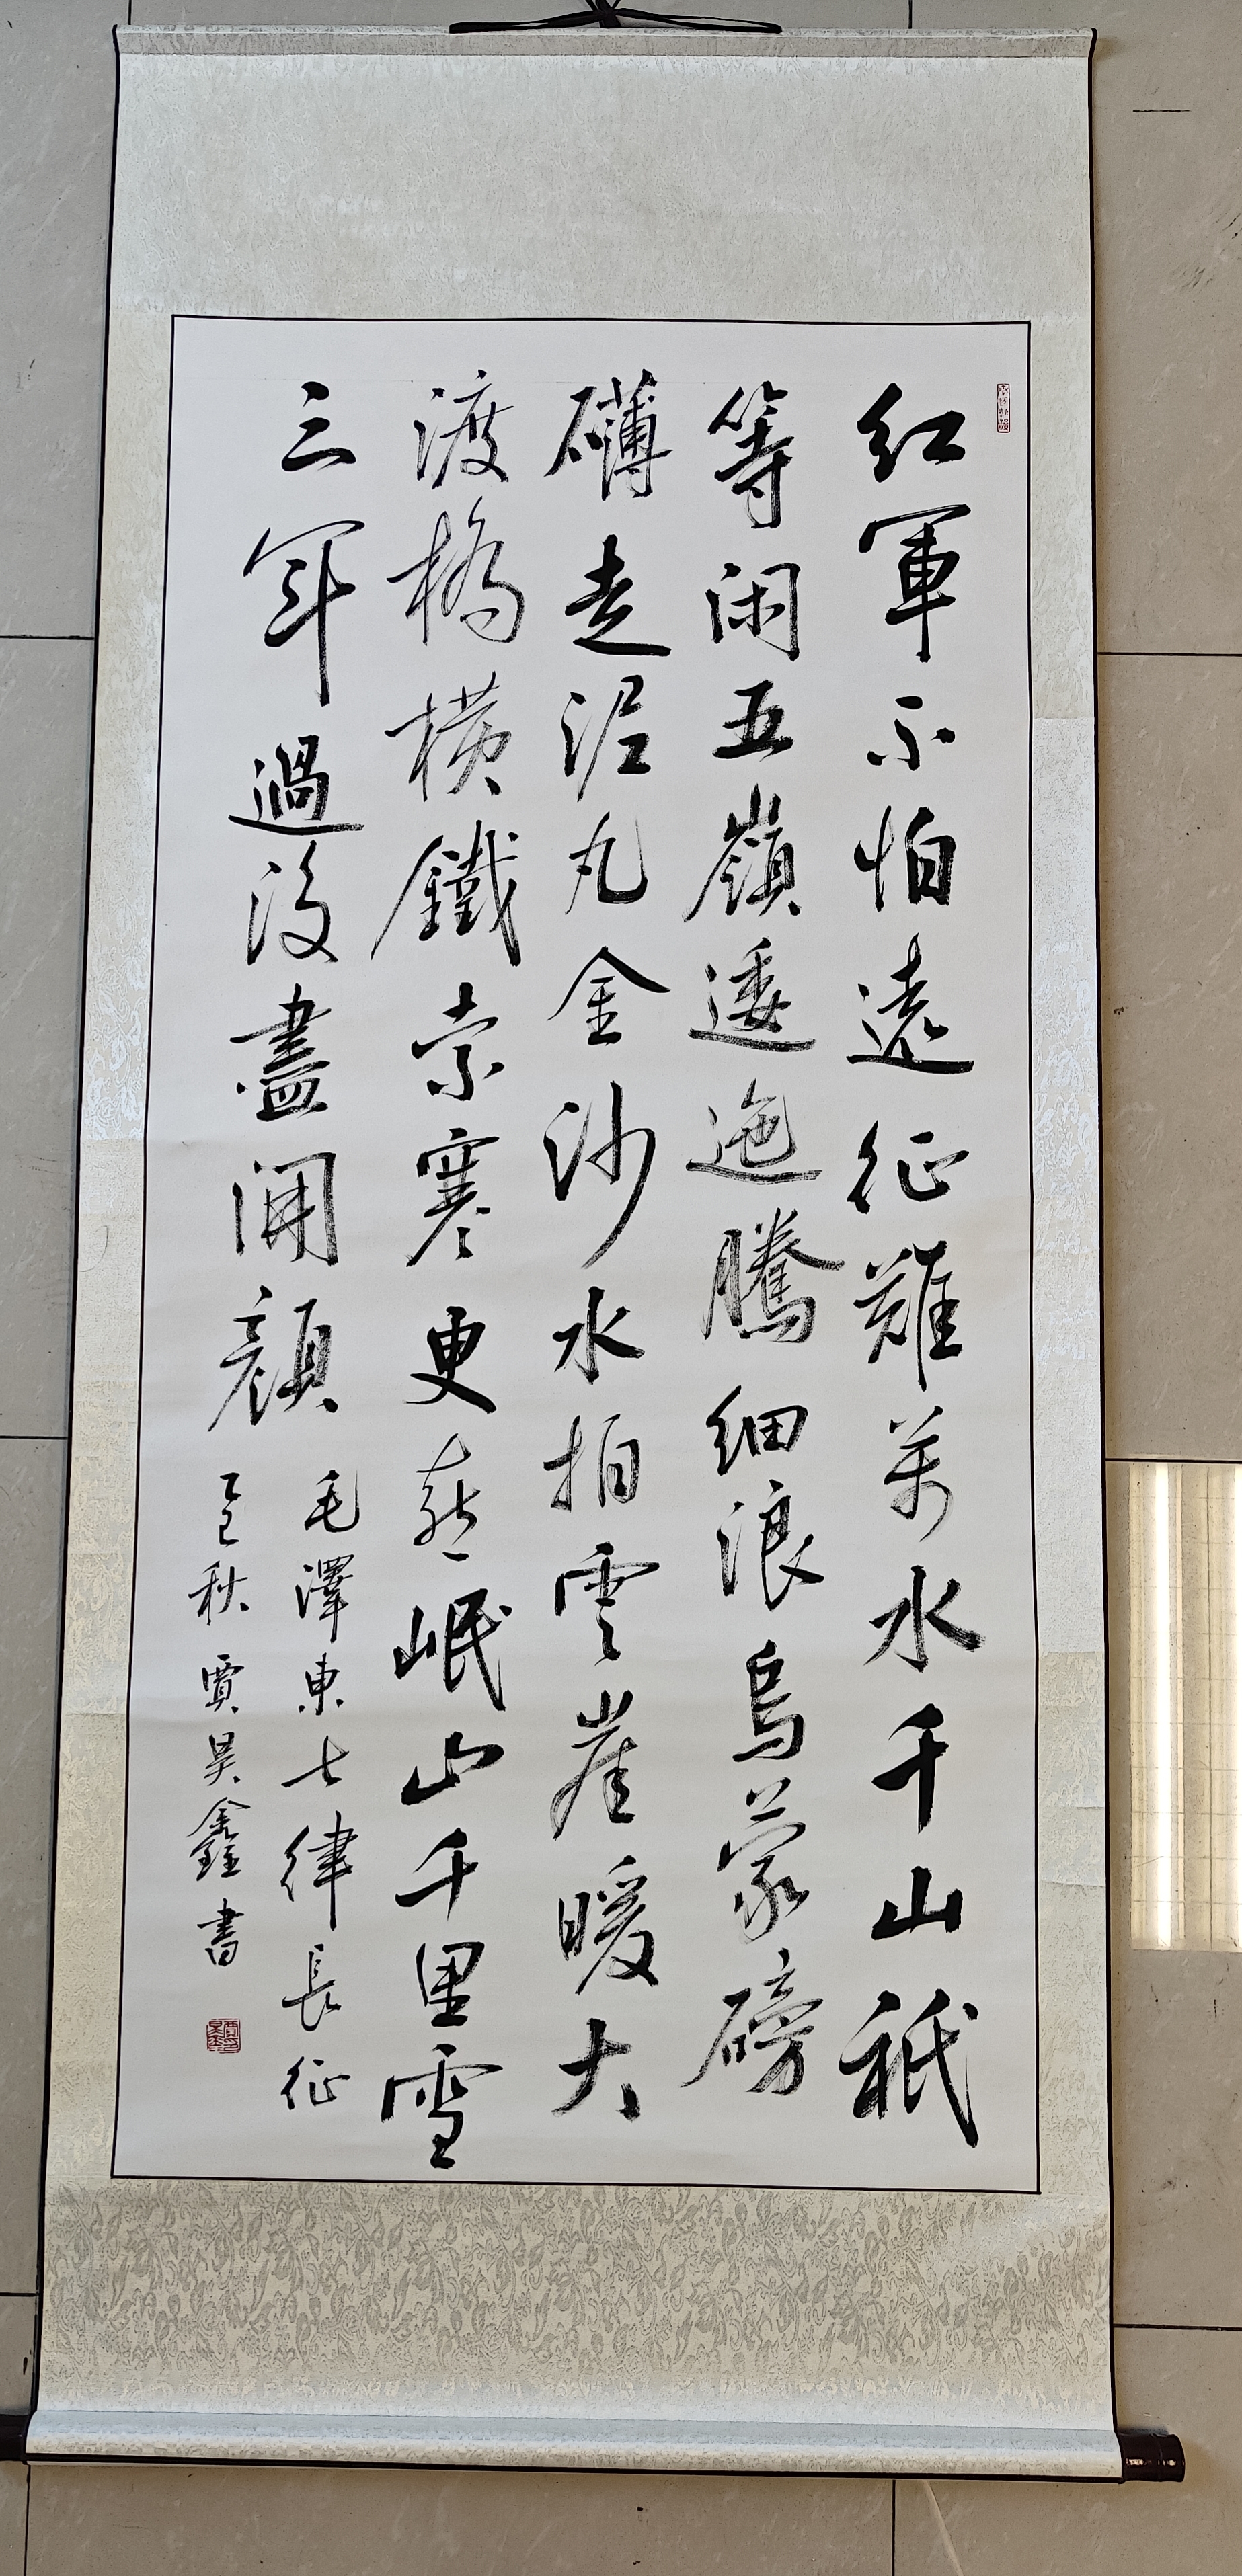 紅軍不怕遠征難萬水千山祇
等閑五嶺逶迤騰細浪烏蒙磅
礴走泥丸金沙水拍雲崖暖大
渡橋橫鐵索寒更喜岷山千里雪
三軍過後盡開顏
毛澤東七律長征
乙巳秋賈昊鑫書